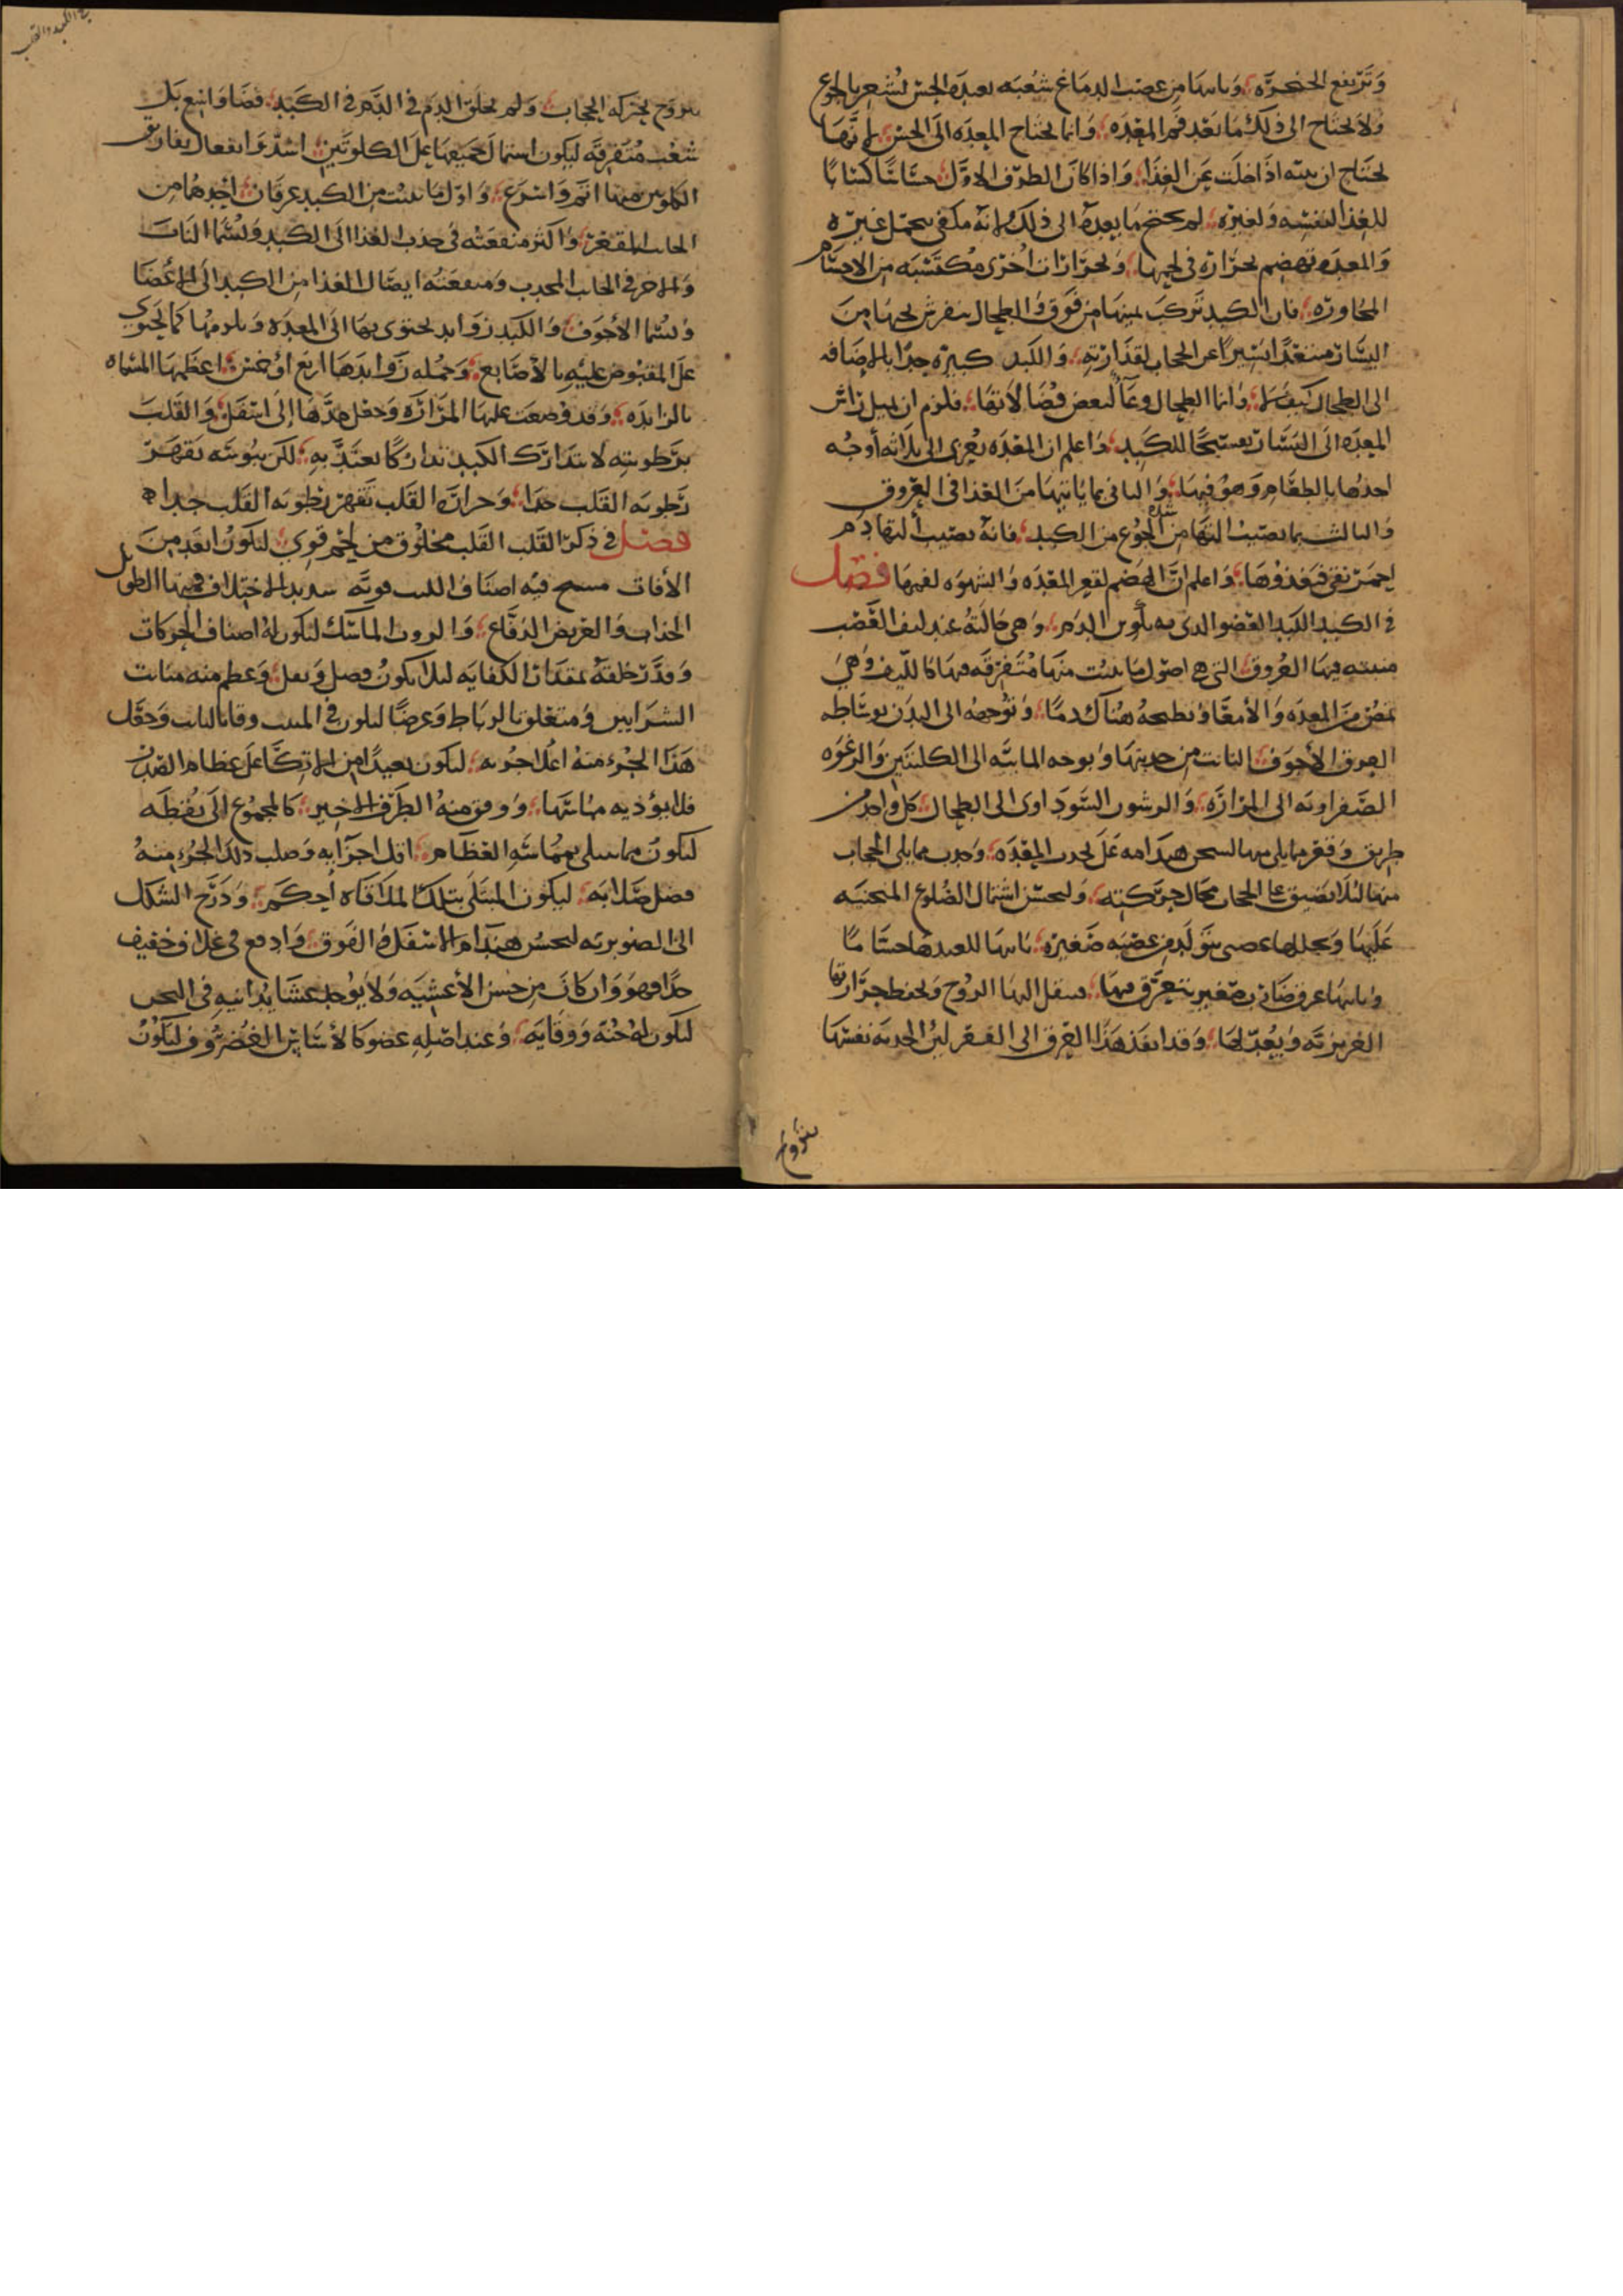 وترتفع الحنجرة، وياتيها من عصب الدماغ شعبه تعيده الحس لتشعر بالجوع
ولا يحتاج الى ذلك ما بعد فم المعده، وانما يحتاج المعده الى الحس، لانها
تحتاج ان تنبه اذا خلت عن الغذا، واذا كان الطرف الاول حساسا كسابا
للغذا لنفسه ولغيره، لم يحتج ما بعده الى ذلك لانه مكفي بتحمل غيره
والمعده تهضم بحرارة في لحمها، وبحرارات اخرى مكتسبه من الاجسام
المجاوره، فان الكبد تركب يمينها من فوق والطحال ينفرش تحتها من
اليسار متبعدا يسيرا عن الحجاب لقذارته، والكبد كبيره جدا بالاضافه
الى الطحال كيف لا، وانما الطحال وعا لبعض فضالاتها، فلزم ان يميل راس
المعده الى اليسار تفسيحا للكبد، واعلم ان المعده تغذى الى ثلاثه أوجه
احدها بالطعام وهو فيها، والثاني بما ياتيها من الغذا في العروق
والثالث بما ينصب اليها من الجوع من الكبد، فانه ينصب اليها دم
احمر نقي فيغذوها، واعلم ان الهضم لقعر المعده والشهوه لفمها، فصل
في الكبد الكبد العضو الذي به تكوين الدم، وهي خالية عن ليف العصب
منبثه فيها العروق، التي هي اصول ما ينبت منها متفرقه فيها كالليف وهي
تمص من المعده والأمعا وتطبخه هناك دما، وتوجهه الى البدن بوساطه
العرق الأجوف، النابت من حدبتها وتوجه المايية الى الكليتين والرغوه
الصفراويه الى المراره، والرسوب السوداوى الى الطحال، كل واحد من
طريق وقعر ما يلي منها المعده ليحسن هندامه على تحدب المعده، وحدب مما يلي الحجاب
منها لئلا تضيق على الحجاب مجال حركته، وليحسن اشتمال الضلوع المنحنيه
عليها ويجللها غشا عصبي يتولد من عصبه صغيره، ياتيها لتفيدها حسا ما
وياتيها عرق ضارب صغير يتعرق فيها، فينقل اليها الروح ويحفظ حرارتها
الغريزيه ويعدلها، وقد انفذ هذا العرق الى القعر لان الحدبه نفسها
تتروح
في الكبد والقلب
تتروح بحركه الحجاب، ولم يخلق الدم في الدم في الكبد، فضا واسع بل
شعب متفرقه ليكون اشتمال جميعها على الكلوتين، اشد وانفعال تفاريق
الكلوس منها اتم واسرع، واول ما ينبت من الكبد عرقان، احدهما من
الجانب المقعر، واكثر منفعته في جذب الغذا الى الكبد ويسما الباب
والاخر في الجانب المحدب ومنفعته ايصال الغذا من الكبد الى الاعضا
ويسما الأجوف، وللكبد زوايد تحتوي بها الى المعده ويلزمها كما يحتوي
على المقبوض عليه بالأصابع، وجمله زوايدها اربع او خمس، اعظمها المسماه
بالزايده، وقد وضعت عليها المراره وجعل مدها الى اسفل، والقلب
برطوبته لا يتدارك الكبد تداركا يعتد به، لكن يبوسته تقهر
رطوبه القلب جدا، وحراره القلب تقهر رطوبه القلب جدا
فصل في ذكر القلب القلب مخلوق من لحم قوي، ليكون ابعد من
الأفات منتسج فيه اصناف الليف قويه شديد الاختلاف فيها الطويل
الجذاب والعريض الدفاع، والوروب الماسك ليكون له اصناف الحركات
وقدر خلقه بمقدار الكفايه ليلا يكون فضل وثقل، وعظم منه منابت
الشرايين ومتعلق الرباط وعرضا ليكون في المنبت وقايا للنابت وجعل
هذا الجزء منه اعلا جزويه، ليكون بعيدا من الاتكا على عظام الصدر
فلا يؤذيه مماستها، ودقق منه الطرف الاخير، كالمجموع الى نقطه
ليكون ما يبتلى بمماسه العظام، اقل اجزآيه وصلب ذلك الجزء منه
فضل صلابه، ليكون المبتلى بتلك الملاقاه احكم، ودرج الشكل
الى الصنوبريه ليحسن هندام الاسفل والفوق، وادمع في غلاف خفيف
جدا وهو وان كان من جنس الأغشيه ولا يوجد غشا يدانيه في الثخن
ليكون له جنه ووقايه، وعند اصله عضو كالأساس الغضروف ليكون